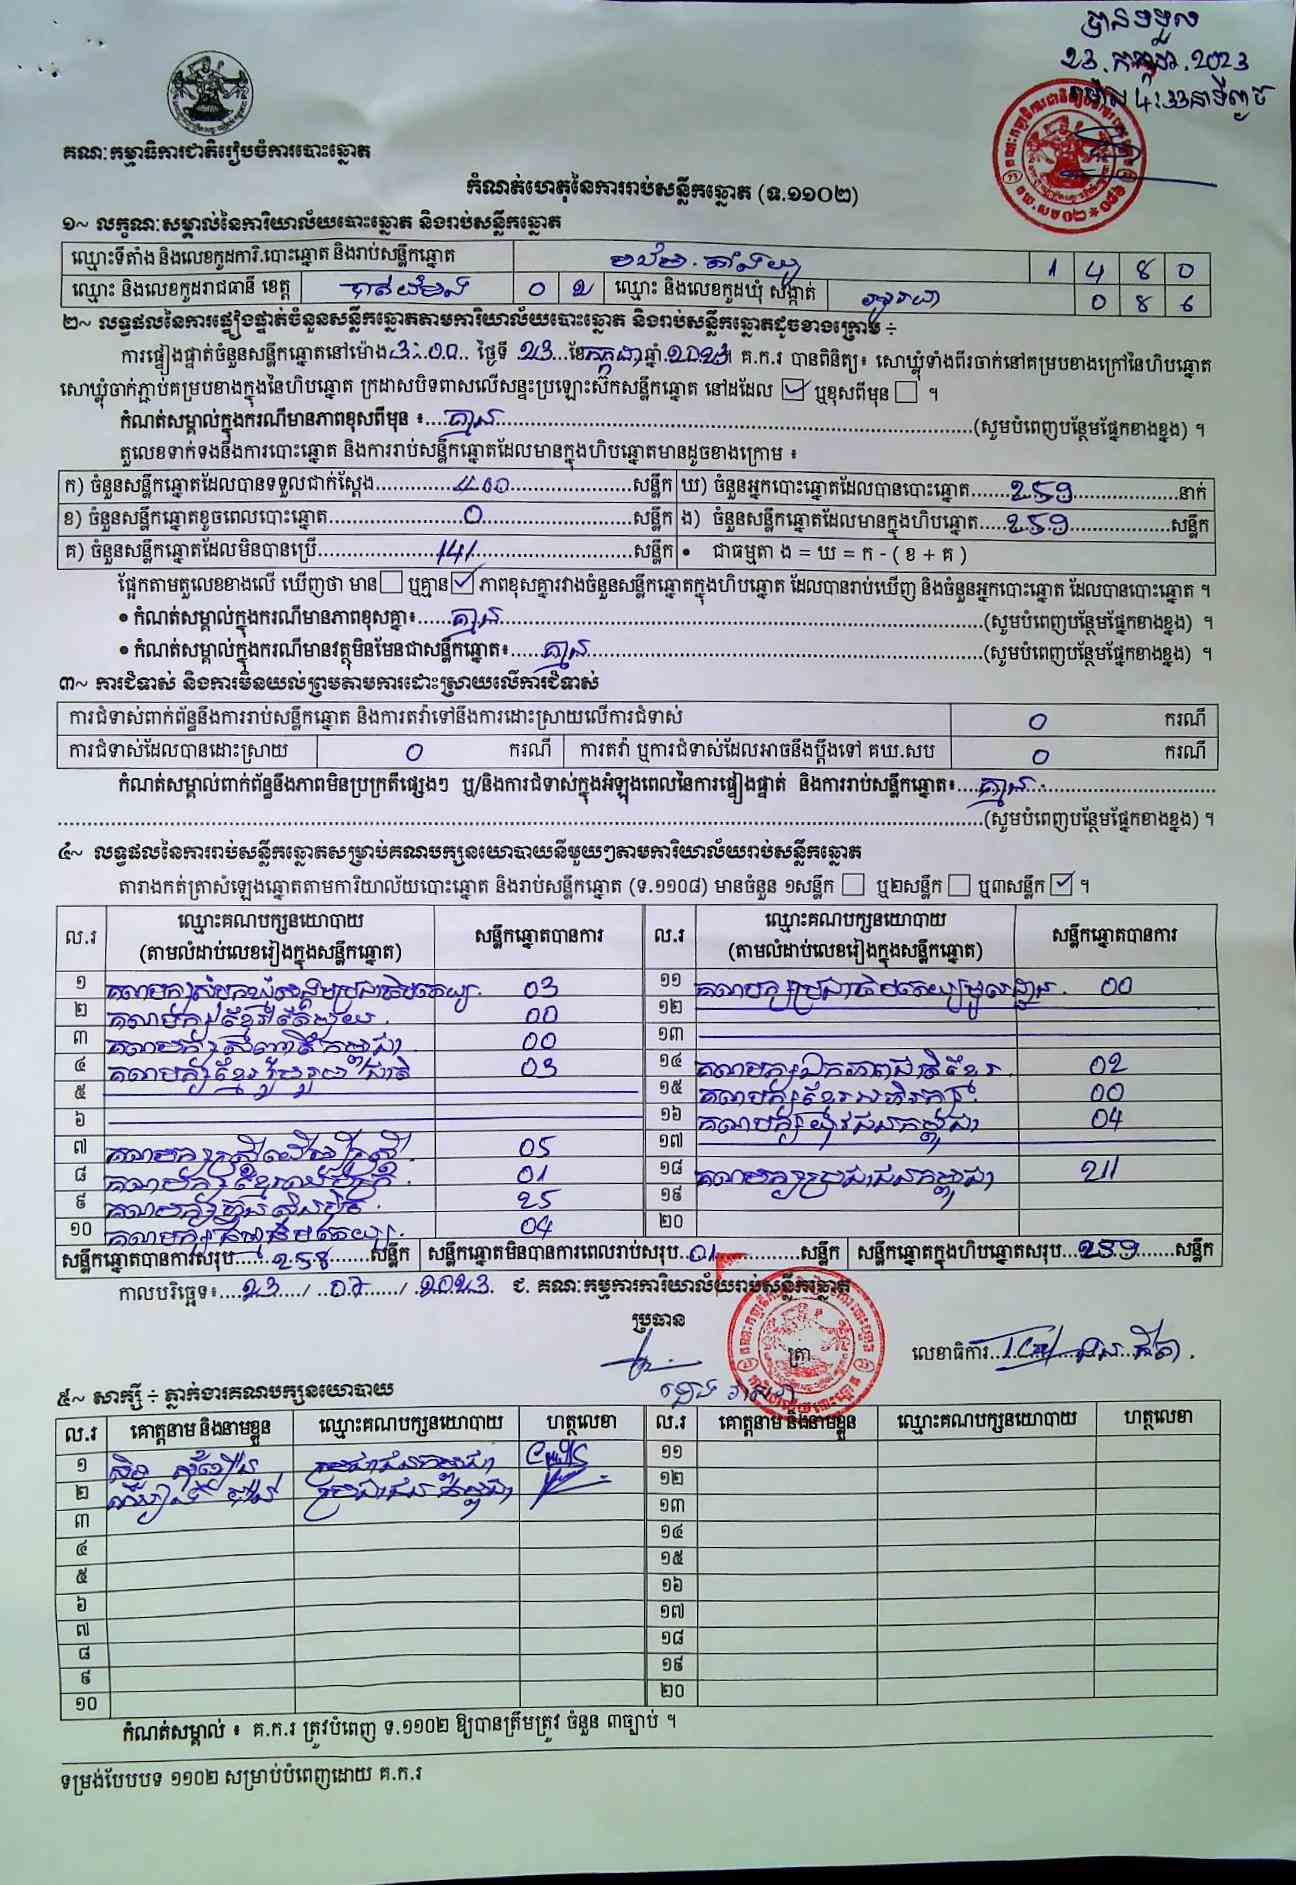 បានទទួល
23.កក្កដា.2023
ម៉ោង 4:33នាទីល្ងាច
គណៈកម្មាធិការជាតិរៀបចំការបោះឆ្នោត
កំណត់ហេតុនៃការរាប់សន្លឹកឆ្នោត (ទ.១១០២)
១~ លក្ខណៈសម្គាល់នៃការិយាល័យបោះឆ្នោត និងរាប់សន្លឹកឆ្នោត
ឈ្មោះទីតាំង និងលេខកូដការិ.បោះឆ្នោត និងរាប់សន្លឹកឆ្នោត 1 4 8 0
ឈ្មោះ និងលេខកូដរាជធានី ខេត្ត បាត់ដំបង 0 2 ឈ្មោះ និងលេខកូដឃុំ សង្កាត់ 0 8 6
២~ លទ្ធផលនៃការផ្ទៀងផ្ទាត់ចំនួនសន្លឹកឆ្នោតតាមការិយាល័យបោះឆ្នោត និងរាប់សន្លឹកឆ្នោតដូចខាងក្រោម ÷
ការផ្ទៀងផ្ទាត់ចំនួនសន្លឹកឆ្នោតនៅម៉ោង 3:00 ថ្ងៃទី 23 ខែ កក្កដា ឆ្នាំ 2023 គ.ក.រ បានពិនិត្យ៖ សោឃ្លុំទាំងពីរចាក់នៅគម្របខាងក្រៅនៃហិបឆ្នោត
សោឃ្លុំចាក់ភ្ជាប់គម្របខាងក្នុងនៃហិបឆ្នោត ក្រដាសបិទពាសលើសន្ទះប្រឡោះស៊កសន្លឹកឆ្នោត នៅដដែល ☑ ឬខុសពីមុន ☐ ។
កំណត់សម្គាល់ក្នុងករណីមានភាពខុសពីមុន ៖ គ្មាន (សូមបំពេញបន្ថែមផ្នែកខាងខ្នង) ។
តួលេខទាក់ទងនឹងការបោះឆ្នោត និងការរាប់សន្លឹកឆ្នោតដែលមានក្នុងហិបឆ្នោតមានដូចខាងក្រោម ៖
ក) ចំនួនសន្លឹកឆ្នោតដែលបានទទួលជាក់ស្តែង 400 សន្លឹក ឃ) ចំនួនអ្នកបោះឆ្នោតដែលបានបោះឆ្នោត 259 នាក់
ខ) ចំនួនសន្លឹកឆ្នោតខូចពេលបោះឆ្នោត 0 សន្លឹក ង) ចំនួនសន្លឹកឆ្នោតដែលមានក្នុងហិបឆ្នោត 259 សន្លឹក
គ) ចំនួនសន្លឹកឆ្នោតដែលមិនបានប្រើ 141 សន្លឹក • ជាធម្មតា ង = ឃ = ក - ( ខ + គ )
ផ្អែកតាមតួលេខខាងលើ ឃើញថា មាន ☐ ឬគ្មាន ☑ ភាពខុសគ្នារវាងចំនួនសន្លឹកឆ្នោតក្នុងហិបឆ្នោត ដែលបានរាប់ឃើញ និងចំនួនអ្នកបោះឆ្នោត ដែលបានបោះឆ្នោត ។
• កំណត់សម្គាល់ក្នុងករណីមានភាពខុសគ្នា៖ គ្មាន (សូមបំពេញបន្ថែមផ្នែកខាងខ្នង) ។
• កំណត់សម្គាល់ក្នុងករណីមានវត្ថុមិនមែនជាសន្លឹកឆ្នោត៖ គ្មាន (សូមបំពេញបន្ថែមផ្នែកខាងខ្នង) ។
៣~ ការជំទាស់ និងការមិនយល់ព្រមតាមការដោះស្រាយលើការជំទាស់
ការជំទាស់ពាក់ព័ន្ធនឹងការរាប់សន្លឹកឆ្នោត និងការតវ៉ាទៅនឹងការដោះស្រាយលើការជំទាស់ 0 ករណី
ការជំទាស់ដែលបានដោះស្រាយ 0 ករណី ការតវ៉ា ឬការជំទាស់ដែលអាចនឹងប្តឹងទៅ គឃ.សប 0 ករណី
កំណត់សម្គាល់ពាក់ព័ន្ធនឹងភាពមិនប្រក្រតីផ្សេងៗ ឬ/និងការជំទាស់ក្នុងអំឡុងពេលនៃការផ្ទៀងផ្ទាត់ និងការរាប់សន្លឹកឆ្នោត៖ គ្មាន
(សូមបំពេញបន្ថែមផ្នែកខាងខ្នង) ។
៤~ លទ្ធផលនៃការរាប់សន្លឹកឆ្នោតសម្រាប់គណបក្សនយោបាយនីមួយៗតាមការិយាល័យរាប់សន្លឹកឆ្នោត
តារាងកត់ត្រាសំឡេងឆ្នោតតាមការិយាល័យបោះឆ្នោត និងរាប់សន្លឹកឆ្នោត (ទ.១១០៨) មានចំនួន ១សន្លឹក ☐ ឬ២សន្លឹក ☐ ឬ៣សន្លឹក ☑ ។
ល.រ ឈ្មោះគណបក្សនយោបាយ (តាមលំដាប់លេខរៀងក្នុងសន្លឹកឆ្នោត) សន្លឹកឆ្នោតបានការ ល.រ ឈ្មោះគណបក្សនយោបាយ (តាមលំដាប់លេខរៀងក្នុងសន្លឹកឆ្នោត) សន្លឹកឆ្នោតបានការ
១ គណបក្សសំបុកឃ្មុំសង្គមប្រជាធិបតេយ្យ 03 ១១ គណបក្សប្រជាធិបតេយ្យមូលដ្ឋាន 00
២ គណបក្សខ្មែរ 00 ១២
៣ គណបក្សសញ្ជាតិកម្ពុជា 00 ១៣
៤ គណបក្សខ្មែររួបរួមជាតិ 03 ១៤ គណបក្សឯកភាពជាតិខ្មែរ 02
៥ ១៥ គណបក្សខ្មែរអភិរក្ស 00
៦ ១៦ គណបក្សយុវជនកម្ពុជា 04
៧ គណបក្សស្ត្រីដើម្បីស្ត្រី 05 ១៧
៨ គណបក្សខ្មែរ 01 ១៨ គណបក្សប្រជាជនកម្ពុជា 211
៩ គណបក្សហ្វ៊ុនស៊ិនប៉ិច 25 ១៩
១០ គណបក្ស 04 ២០
សន្លឹកឆ្នោតបានការសរុប 258 សន្លឹក សន្លឹកឆ្នោតមិនបានការពេលរាប់សរុប 01 សន្លឹក សន្លឹកឆ្នោតក្នុងហិបឆ្នោតសរុប 259 សន្លឹក
កាលបរិច្ឆេទ៖ 23 / 07 / 2023 ជ. គណៈកម្មការការិយាល័យរាប់សន្លឹកឆ្នោត
ប្រធាន
ត្រា
លេខាធិការ
៥~ សាក្សី ÷ ភ្នាក់ងារគណបក្សនយោបាយ
ល.រ គោត្តនាម និងនាមខ្លួន ឈ្មោះគណបក្សនយោបាយ ហត្ថលេខា ល.រ គោត្តនាម និងនាមខ្លួន ឈ្មោះគណបក្សនយោបាយ ហត្ថលេខា
១ ប្រជាជនកម្ពុជា ១១
២ ប្រជាជនកម្ពុជា ១២
៣ ១៣
៤ ១៤
៥ ១៥
៦ ១៦
៧ ១៧
៨ ១៨
៩ ១៩
១០ ២០
កំណត់សម្គាល់ ៖ គ.ក.រ ត្រូវបំពេញ ទ.១១០២ ឱ្យបានត្រឹមត្រូវ ចំនួន ៣ច្បាប់ ។
ទម្រង់បែបបទ ១១០២ សម្រាប់បំពេញដោយ គ.ក.រ